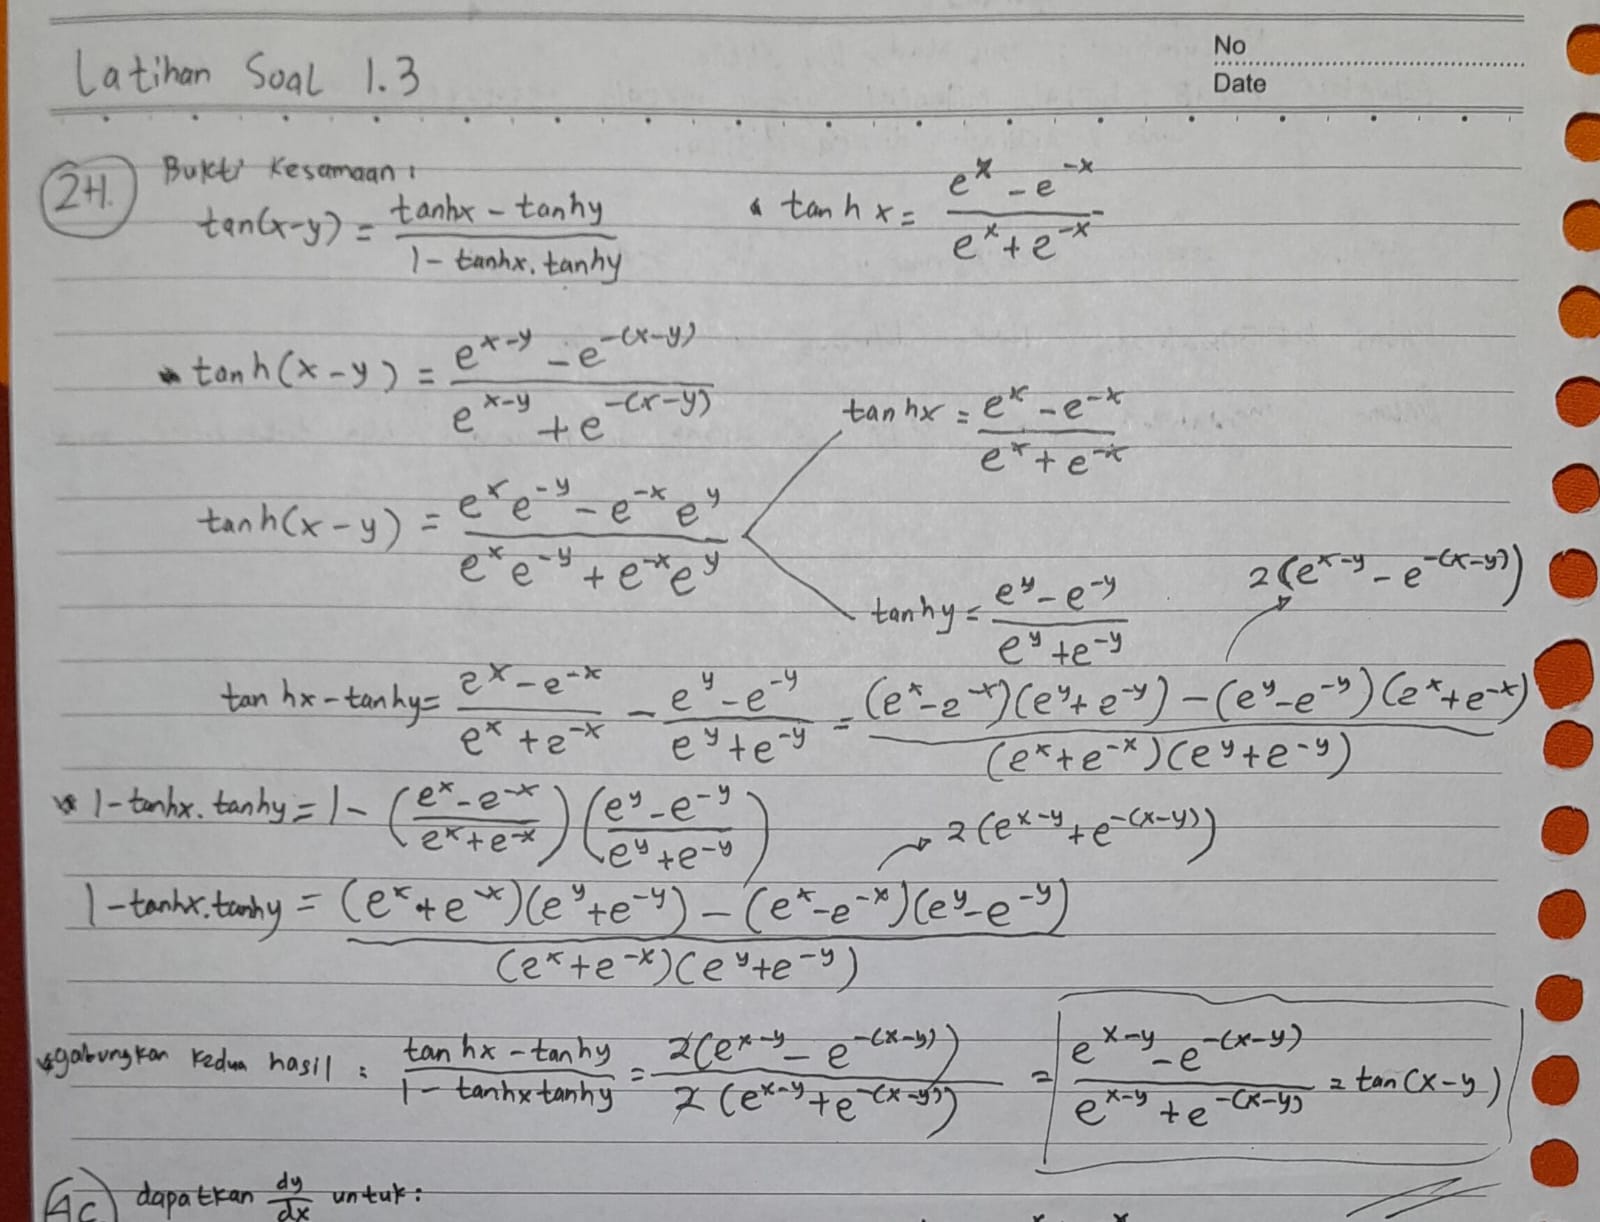 No
Latihan Soal 1.3
Date
2H. Bukti Kesamaan:
tan(x-y) = (tanhx - tanhy)/(1 - tanhx. tanhy)
tanh x = (e^x - e^-x)/(e^x + e^-x)
tanh(x-y) = (e^x-y - e^-(x-y))/(e^x-y + e^-(x-y))
tanhx = (e^x - e^-x)/(e^x + e^-x)
tanh(x-y) = (e^x e^-y - e^-x e^y)/(e^x e^-y + e^-x e^y)
tanhy = (e^y - e^-y)/(e^y + e^-y)
2(e^x-y - e^-(x-y))
tanhx - tanhy = (e^x - e^-x)/(e^x + e^-x) - (e^y - e^-y)/(e^y + e^-y) = ((e^x - e^-x)(e^y + e^-y) - (e^y - e^-y)(e^x + e^-x))/((e^x + e^-x)(e^y + e^-y))
1 - tanhx. tanhy = 1 - ((e^x - e^-x)/(e^x + e^-x)) ((e^y - e^-y)/(e^y + e^-y))
2(e^x-y + e^-(x-y))
1 - tanhx. tanhy = ((e^x + e^-x)(e^y + e^-y) - (e^x - e^-x)(e^y - e^-y))/((e^x + e^-x)(e^y + e^-y))
gabungkan kedua hasil : (tanhx - tanhy)/(1 - tanhx tanhy) = 2(e^x-y - e^-(x-y))/2(e^x-y + e^-(x-y)) = (e^x-y - e^-(x-y))/(e^x-y + e^-(x-y)) = tan(x-y)
4c dapatkan dy/dx untuk: